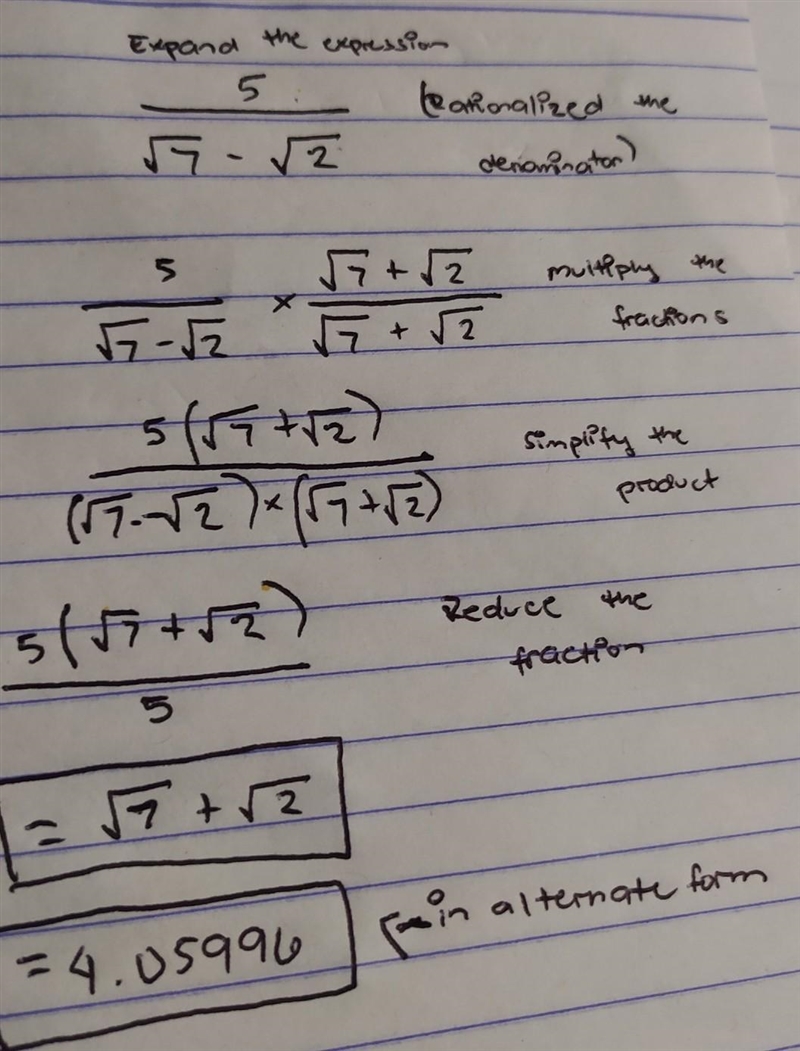 Expand the expression
5
√7 - √2
(Rationalized the
denominator)
5 / √7 - √2 × √7 + √2 / √7 + √2
multiply the
fractions
5(√7 + √2)
(√7 - √2) × (√7 + √2)
simplify the
product
5(√7 + √2)
5
Reduce the
fraction
= √7 + √2
= 4.05996
in alternate form